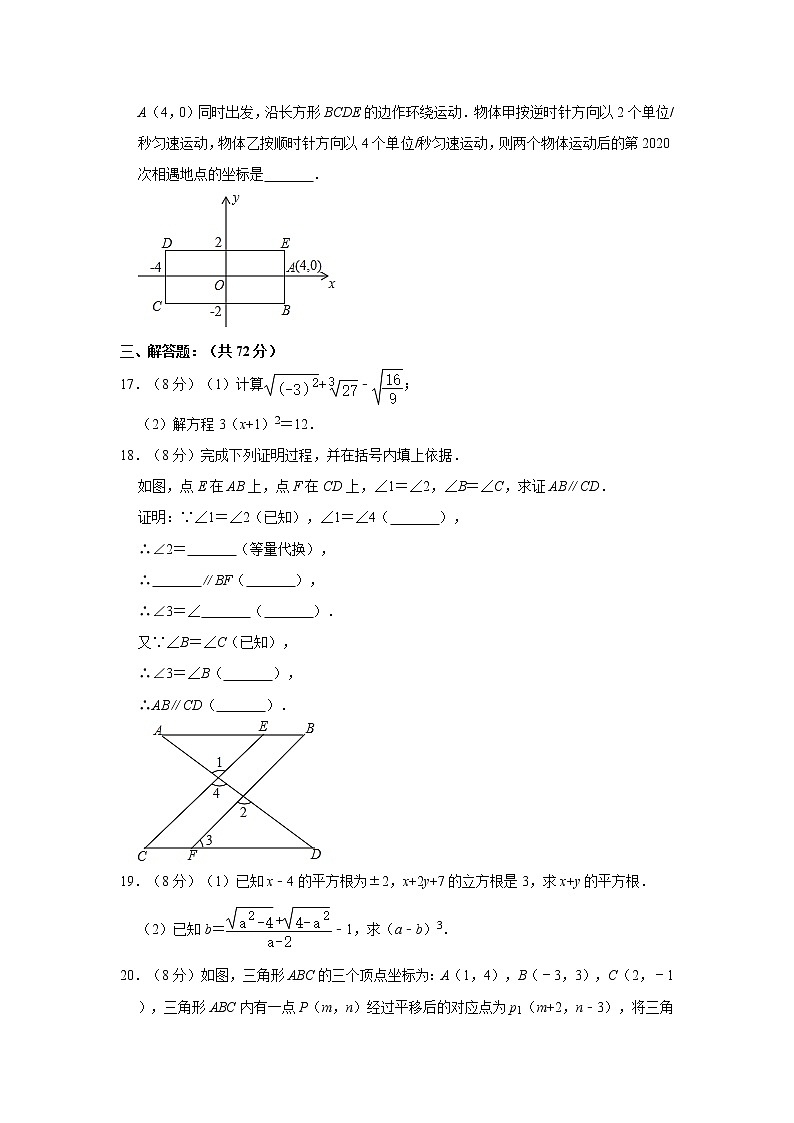 A(4,0)同时出发,沿长方形BCDE的边作环绕运动.物体甲按逆时针方向以2个单位/
秒匀速运动,物体乙按顺时针方向以4个单位/秒匀速运动,则两个物体运动后的第2020
次相遇地点的坐标是_______.
y
D 2 E
-4 A(4,0)
O x
C -2 B
三、解答题:(共72分)
17.(8分)(1)计算√(﹣3)²+³√27﹣√16/9;
(2)解方程3(x+1)²=12.
18.(8分)完成下列证明过程,并在括号内填上依据.
如图,点E在AB上,点F在CD上,∠1=∠2,∠B=∠C,求证AB∥CD.
证明:∵∠1=∠2(已知),∠1=∠4(_______),
∴∠2=_______(等量代换),
∴_______∥BF(_______),
∴∠3=∠_______(_______).
又∵∠B=∠C(已知),
∴∠3=∠B(_______),
∴AB∥CD(_______).
A E B
1
4
2
3
C F D
19.(8分)(1)已知x﹣4的平方根为±2,x+2y+7的立方根是3,求x+y的平方根.
(2)已知b=(√a²-4+√4-a²)/(a-2)﹣1,求(a﹣b)³.
20.(8分)如图,三角形ABC的三个顶点坐标为:A(1,4),B(﹣3,3),C(2,﹣1
),三角形ABC内有一点P(m,n)经过平移后的对应点为p₁(m+2,n﹣3),将三角